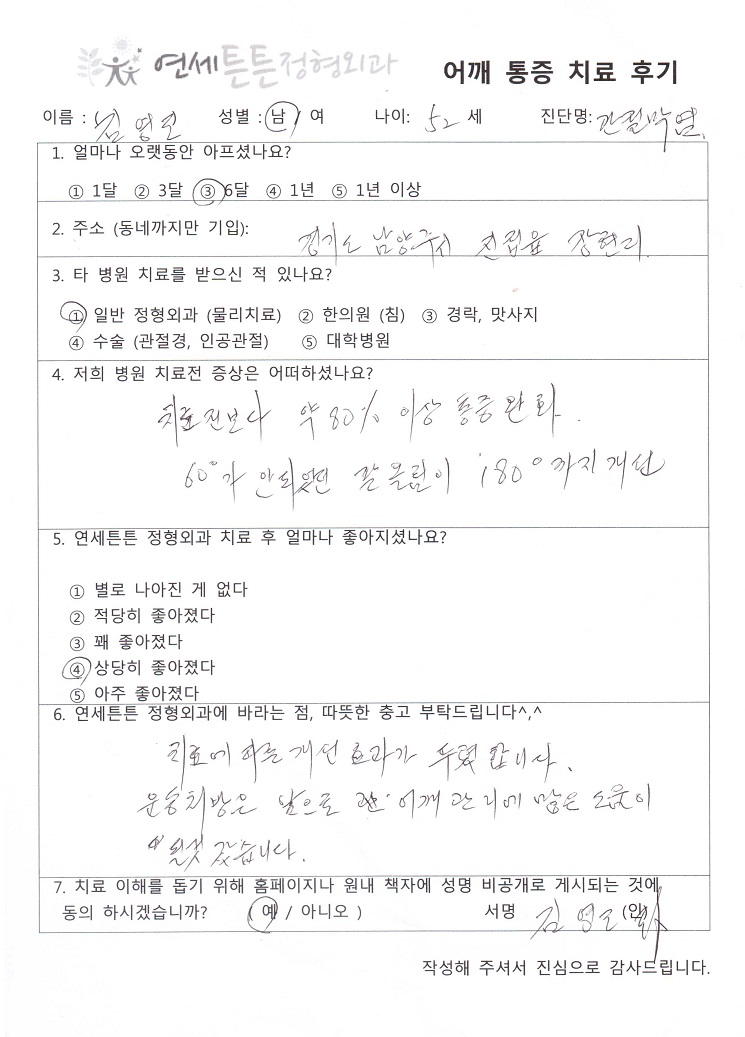 연세튼튼정형외과
어깨 통증 치료 후기
이름 : 김영 성별 : 남 / 여 나이: 52 세 진단명: 관절막염.
1. 얼마나 오랫동안 아프셨나요?
① 1달 ② 3달 ③ 6달 ④ 1년 ⑤ 1년 이상
2. 주소 (동네까지만 기입): 경기도 남양주시 진접읍 장현리
3. 타 병원 치료를 받으신 적 있나요?
① 일반 정형외과 (물리치료) ② 한의원 (침) ③ 경락, 맛사지
④ 수술 (관절경, 인공관절) ⑤ 대학병원
4. 저희 병원 치료전 증상은 어떠하셨나요?
치료전보다 약 80% 이상 통증 완화.
60°가 안되었던 팔올림이 180°까지 개선
5. 연세튼튼 정형외과 치료 후 얼마나 좋아지셨나요?
① 별로 나아진 게 없다
② 적당히 좋아졌다
③ 꽤 좋아졌다
④ 상당히 좋아졌다
⑤ 아주 좋아졌다
6. 연세튼튼 정형외과에 바라는 점, 따뜻한 충고 부탁드립니다^,^
치료에 따른 개선 효과가 뚜렷합니다.
운동처방은 앞으로 어깨관리에 많은 도움이
될것 같습니다.
7. 치료 이해를 돕기 위해 홈페이지나 원내 책자에 성명 비공개로 게시되는 것에
동의 하시겠습니까? ( 예 / 아니오 ) 서명 김영 (인)
작성해 주셔서 진심으로 감사드립니다.